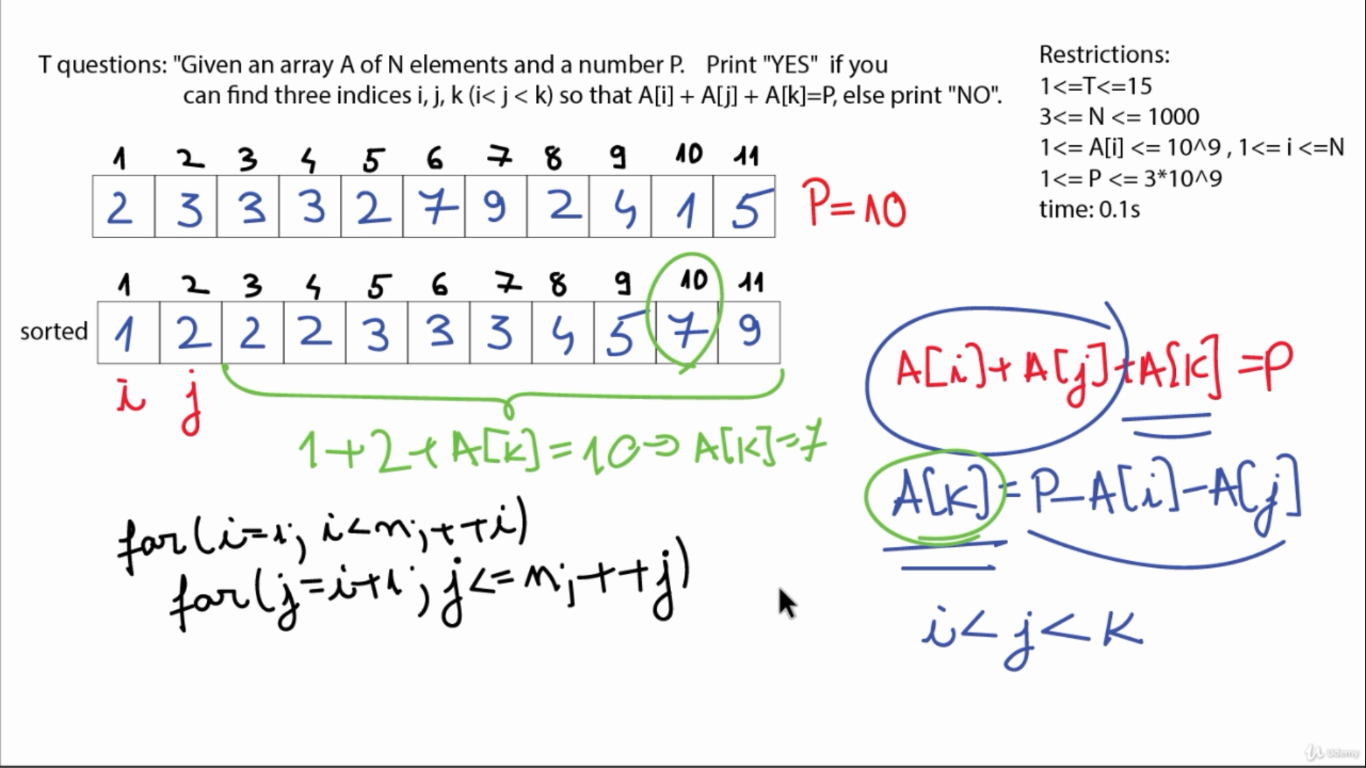 T questions: "Given an array A of N elements and a number P. Print "YES" if you
can find three indices i, j, k (i< j < k) so that A[i] + A[j] + A[k]=P, else print "NO".
Restrictions:
1<=T<=15
3<= N <= 1000
1<= A[i] <= 10^9 , 1<= i <=N
1<= P <= 3*10^9
time: 0.1s
1 2 3 4 5 6 7 8 9 10 11
2 3 3 3 2 7 9 2 4 1 5
P=10
1 2 3 4 5 6 7 8 9 10 11
sorted 1 2 2 2 3 3 3 4 5 7 9
i j
1+2+A[k]=10=>A[k]=7
A[i]+A[j]+A[k]=P
A[k]=P-A[i]-A[j]
i<j<k
for(i=1; i<n; ++i)
for(j=i+1; j<=n; ++j)
Udemy